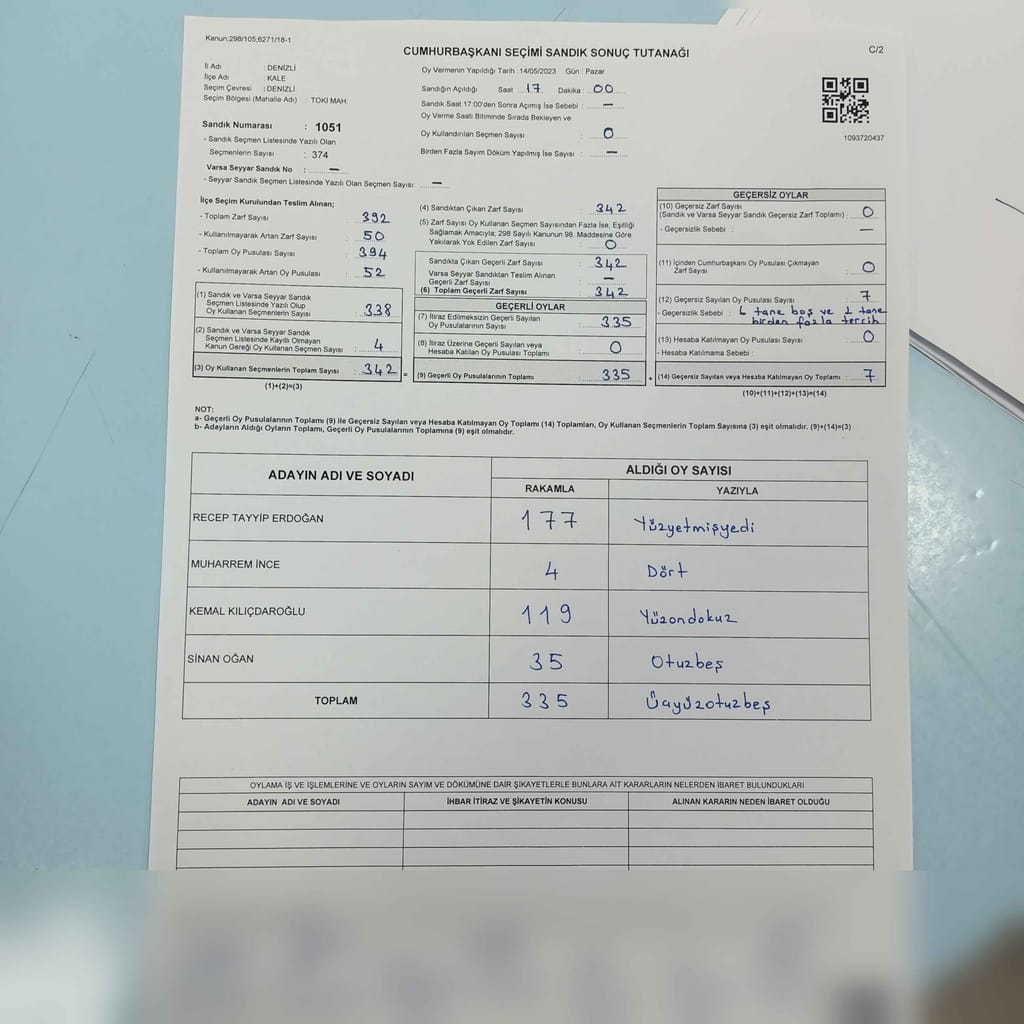 Kanun;298/105;6271/18-1
CUMHURBAŞKANI SEÇİMİ SANDIK SONUÇ TUTANAĞI
C/2
İl Adı : DENİZLİ
İlçe Adı : KALE
Seçim Çevresi : DENİZLİ
Seçim Bölgesi (Mahalle Adı) : TOKİ MAH.
Sandık Numarası : 1051
- Sandık Seçmen Listesinde Yazılı Olan
Seçmenlerin Sayısı : 374
Varsa Seyyar Sandık No : —
- Seyyar Sandık Seçmen Listesinde Yazılı Olan Seçmen Sayısı: —
Oy Vermenin Yapıldığı Tarih : 14/05/2023 Gün : Pazar
Sandığın Açıldığı Saat 17 Dakika : 00
Sandık Saat 17:00'den Sonra Açımış İse Sebebi : —
Oy Verme Saati Bitiminde Sırada Bekleyen ve
Oy Kullandırılan Seçmen Sayısı : 0
Birden Fazla Sayım Döküm Yapılmış İse Sayısı : —
1093720437
İlçe Seçim Kurulundan Teslim Alınan;
- Toplam Zarf Sayısı : 392
- Kullanılmayarak Artan Zarf Sayısı : 50
- Toplam Oy Pusulası : 394
- Kullanılmayarak Artan Oy Pusulası : 52
(1) Sandık ve Varsa Seyyar Sandık
Seçmen Listesinde Yazılı Olup
Oy Kullanan Seçmenlerin Sayısı : 338
(2) Sandık ve Varsa Seyyar Sandık
Seçmen Listesinde Kayıtlı Olmayan
Kanun Gereği Oy Kullanan Seçmen Sayısı : 4
(3) Oy Kullanan Seçmenlerin Toplam Sayısı : 342 =
(1)+(2)=(3)
(4) Sandıktan Çıkan Zarf Sayısı : 342
(5) Zarf Sayısı Oy Kullanan Seçmen Sayısından Fazla İse, Eşitliği
Sağlamak Amacıyla; 298 Sayılı Kanunun 98. Maddesine Göre
Yakılarak Yok Edilen Zarf Sayısı : 0
Sandıkta Çıkan Geçerli Zarf Sayısı : 342
Varsa Seyyar Sandıktan Teslim Alınan
Geçerli Zarf Sayısı : —
(6) Toplam Geçerli Zarf Sayısı : 342
GEÇERLİ OYLAR
(7) İtiraz Edilmeksizin Geçerli Sayılan
Oy Pusulalarının Sayısı : 335
(8) İtiraz Üzerine Geçerli Sayılan veya
Hesaba Katılan Oy Pusulası Toplamı : 0
(9) Geçerli Oy Pusulalarının Toplamı : 335 +
GEÇERSİZ OYLAR
(10) Geçersiz Zarf Sayısı
(Sandık ve Varsa Seyyar Sandık Geçersiz Zarf Toplamı) : 0
- Geçersizlik Sebebi : —
(11) İçinden Cumhurbaşkanı Oy Pusulası Çıkmayan
Zarf Sayısı : 0
(12) Geçersiz Sayılan Oy Pusulası Sayısı : 7
- Geçersizlik Sebebi : 6 tane boş ve 1 tane
birden fazla tercih
(13) Hesaba Katılmayan Oy Pusulası Sayısı : 0
- Hesaba Katılmama Sebebi :
(14) Geçersiz Sayılan veya Hesaba Katılmayan Oy Toplamı : 7
(10)+(11)+(12)+(13)=(14)
NOT:
a- Geçerli Oy Pusulalarının Toplamı (9) ile Geçersiz Sayılan veya Hesaba Katılmayan Oy Toplamı (14) Toplamları, Oy Kullanan Seçmenlerin Toplam Sayısına (3) eşit olmalıdır. (9)+(14)=(3)
b- Adayların Aldığı Oyların Toplamı, Geçerli Oy Pusulalarının Toplamına (9) eşit olmalıdır.
ADAYIN ADI VE SOYADI
ALDIĞI OY SAYISI
RAKAMLA YAZIYLA
RECEP TAYYİP ERDOĞAN 177 Yüzyetmişyedi
MUHARREM İNCE 4 Dört
KEMAL KILIÇDAROĞLU 119 Yüzondokuz
SİNAN OĞAN 35 Otuzbeş
TOPLAM 335 Üçyüzotuzbeş
OYLAMA İŞ VE İŞLEMLERİNE VE OYLARIN SAYIM VE DÖKÜMÜNE DAİR ŞİKAYETLERLE BUNLARA AİT KARARLARIN NELERDEN İBARET BULUNDUKLARI
ADAYIN ADI VE SOYADI İHBAR İTİRAZ VE ŞİKAYETİN KONUSU ALINAN KARARIN NEDEN İBARET OLDUĞU